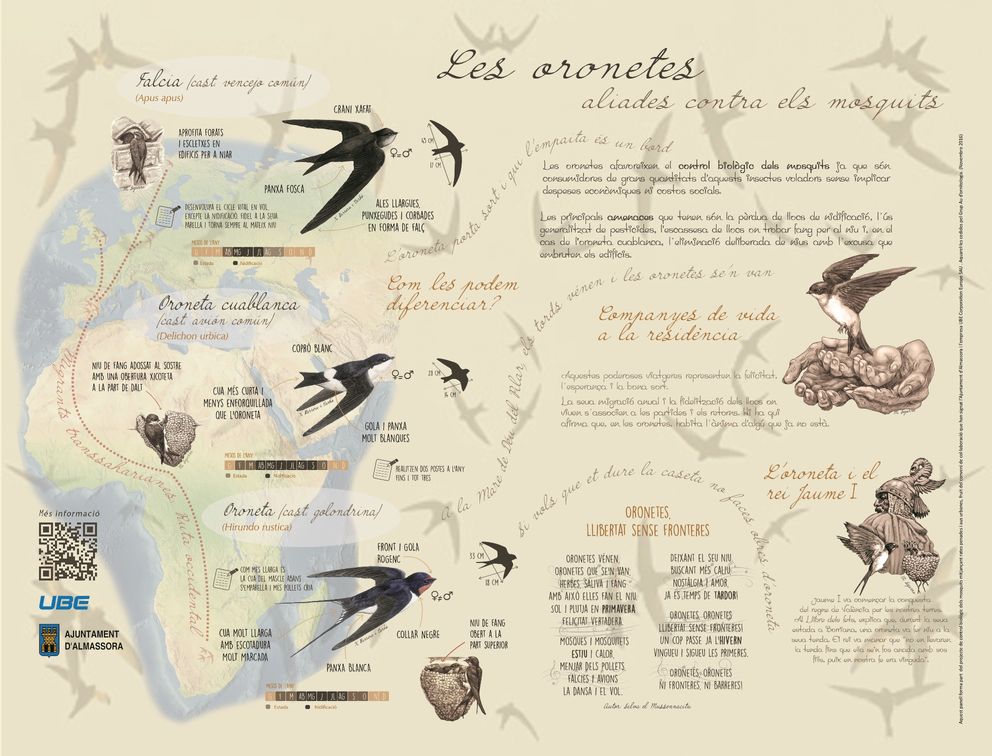 Les oronetes
aliades contra els mosquits
Falcia (cast. vencejo común)
(Apus apus)
APROFITA FORATS
I ESCLETXES EN
EDIFICIS PER A NIAR
CRANI XAFAT
PANXA FOSCA
ALES LLARGUES,
PUNXEGUDES I CORBADES
EN FORMA DE FALÇ
♀=♂
17 CM
DESENVOLUPA EL CICLE VITAL EN VOL,
EXCEPTE LA NIDIFICACIÓ. FIDEL A LA SEUA
PARELLA I TORNA SEMPRE AL MATEIX NIU
MESOS DE L'ANY
G F M AB MG J JL AG S O N D
Estada Nidificació
L'oroneta porta sort i qui l'empaita és un bord
Les oronetes afavoreixen el control biològic dels mosquits ja que són
consumidores de grans quantitats d'aquests insectes voladors sense implicar
despeses econòmiques ni costos socials.
Les principals amenaces que tenen són la pèrdua de llocs de nidificació, l'ús
generalitzat de pesticides, l'escassesa de llocs on trobar fang per al niu i, en el
cas de l'oroneta cuablanca, l'eliminació deliberada de nius amb l'excusa que
embruten els edificis.
Com les podem
diferenciar?
Oroneta cuablanca
(cast. avión común)
(Delichon urbica)
NIU DE FANG ADOSSAT AL SOSTRE
AMB UNA OBERTURA XICOTETA
A LA PART DE DALT
COPRÓ BLANC
CUA MÉS CURTA I
MENYS ENFORQUILLADA
QUE L'ORONETA
GOLA I PANXA
MOLT BLANQUES
♀=♂
14 CM
MESOS DE L'ANY
G F M AB MG J JL AG S O N D
Estada Nidificació
REALITZEN DOS POSTES A L'ANY
FINS I TOT TRES
A la Mare de Déu del Pilar, els tords vénen i les oronetes se'n van
Companyes de vida
a la residència
Aquestes poderoses viatgeres representen la felicitat,
l'esperança i la bona sort.
La seua migració anual i la fidelització dels llocs on
viuen s'associen a les partides i els retorns. Hi ha qui
afirma que, en les oronetes, habita l'ànima d'algú que ja no està.
Migrants transsaharianes
Ruta occidental
Oroneta (cast. golondrina)
(Hirundo rustica)
COM MÉS LLARGA ÉS
LA CUA DEL MASCLE ABANS
S'EMPARELLA I MÉS POLLETS CRIA
FRONT I GOLA
ROGENC
♀=♂
33 CM
18 CM
CUA MOLT LLARGA
AMB ESCOTADURA
MOLT MARCADA
COLLAR NEGRE
PANXA BLANCA
NIU DE FANG
OBERT A LA
PART SUPERIOR
MESOS DE L'ANY
G F M AB MG J JL AG S O N D
Estada Nidificació
Si vols que et dure la caseta no faces
Més informació
UBE
AJUNTAMENT
D'ALMASSORA
ORONETES,
LLIBERTAT SENSE FRONTERES
ORONETES VÉNEN,
ORONETES QUE SE'N VAN.
HERBES, SALIVA I FANG
AMB AIXÒ ELLES FAN EL NIU.
SOL I PLUTJA EN PRIMAVERA,
FELICITAT VERTADERA.
MOSQUES I MOSQUITETS
ESTIU I CALOR,
MENJAR DELS POLLETS.
FALCIES I AVIONS
LA DANSA I EL VOL.
DEIXANT EL SEU NIU,
BUSCANT MÉS CALIU
NOSTÀLGIA I AMOR,
JA ÉS TEMPS DE TARDOR!
ORONETES, ORONETES
LLIBERTAT SENSE FRONTERES!
UN COP PASSE JA L'HIVERN
VINGUEU I SIGUEU LES PRIMERES.
ORONETES, ORONETES
NI FRONTERES, NI BARRERES!
L'oroneta i el
rei Jaume I
Jaume I va començar la conquesta
del regne de València per les nostres terres.
Al Llibre dels fets, explica que, durant la seua
estada a Borriana, una oroneta va fer niu a la
seua tenda.